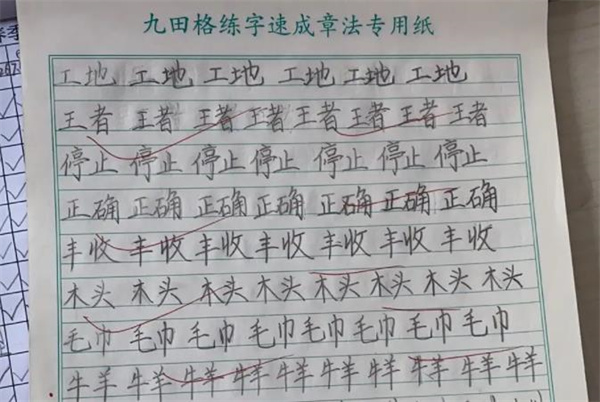 九田格练字速成章法专用纸
工地 工地 工地 工地 工地 工地
王者 王者 王者 王者 王者 王者 王者 王者
停止 停止 停止 停止 停止 停止 停止
正确 正确 正确 正确 正确 正确 正确
丰收 丰收 丰收 丰收 丰收 丰收 丰收
木头 木头 木头 木头 木头 木头 木头 木头
毛巾 毛巾 毛巾 毛巾 毛巾 毛巾 毛巾 毛巾
牛羊 牛羊 牛羊 牛羊 牛羊 牛羊 牛羊 牛羊 牛羊